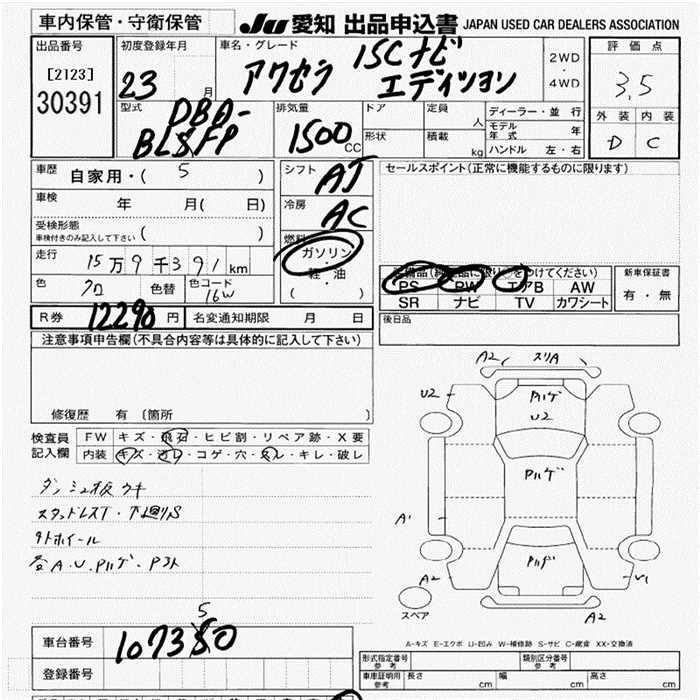 車内保管・守衛保管 JU 愛知 出品申込書 JAPAN USED CAR DEALERS ASSOCIATION
出品番号 初度登録年月 車名・グレード 2WD・4WD 評価点
[2123] 23 月 アクセラ 15C ナビエディション 3.5
30391 型式 DBA-BL5FP 排気量 1500 CC ドア 定員 人 ディーラー・並行 外装 内装
形状 積載 kg モデル年式 年 D C
ハンドル 左・右
車歴 自家用・( 5 ) シフト AT セールスポイント(正常に機能するものに限ります)
車検 年 月( 日) 冷房 AC
受検形態
車検付きのみ記入して下さい ( )
燃料 ガソリン・軽油 ( )
走行 15万9千391km
色 クロ 色替 色コード 16W
をつけてください) 新車保証書
PS PW エアB AW 有・無
SR ナビ TV カワシート
R券 12290円 名変通知期限 月 日 後日品
注意事項申告欄(不具合内容等は具体的に記入して下さい)
修復歴 有 〔箇所 〕
検査員記入欄 FW キズ・飛石・ヒビ割・リペア跡・X要
内装 キズ・汚レ・コゲ・穴・スレ・キレ・破レ
ダッシュ板ウキ
スタッドレスT・下廻りS
タトホイール
各A.U.Pハゲ.
A2 スリA
U2 Pハゲ U2
Pハゲ
A1
Pハゲ
A2 U1
スペア A2
5
車台番号 107350
A-キズ E-エクボ U-凹み W-補修跡 S-サビ C-腐食 XX-交換済
登録番号 形式指定番号 参考 類別区分番号 参考
車庫証明用 参考 長さ cm 幅 cm 高さ cm